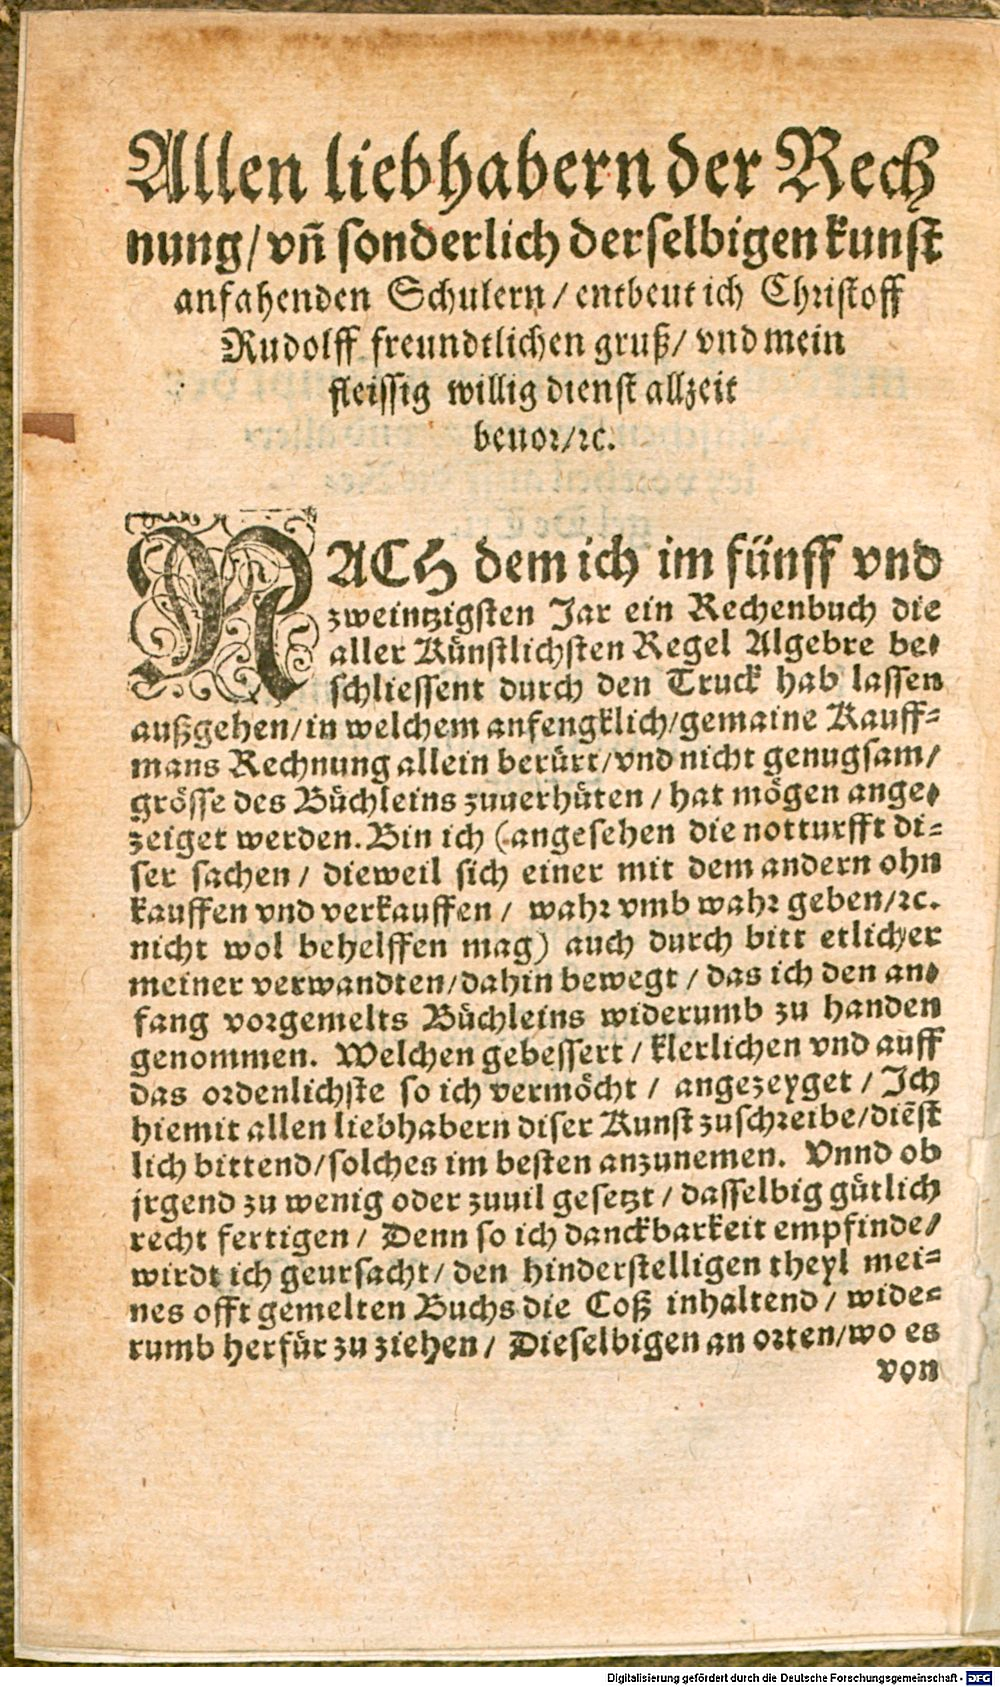 Allen liebhabern der Rech
nung/ vn̄ sonderlich derselbigen kunst
anfahenden Schulern/ entbeut ich Christoff
Rudolff freundtlichen gruß/ vnd mein
fleissig willig dienst allzeit
beuor/ꝛc.
NACH dem ich im fünff vnd
zweintzigsten Jar ein Rechenbuch die
aller Künstlichsten Regel Algebre be-
schliessent durch den Truck hab lassen
außgehen/in welchem anfengklich/gemaine Kauff-
mans Rechnung allein berürt/vnd nicht genugsam/
grösse des Büchleins zuuerhüten/ hat mögen ange-
zeiget werden. Bin ich (angesehen die notturfft di-
ser sachen/ dieweil sich einer mit dem andern ohn
kauffen vnd verkauffen/ wahr vmb wahr geben/ꝛc.
nicht wol behelffen mag) auch durch bitt etlicher
meiner verwandten/dahin bewegt/ das ich den an-
fang vorgemelts Büchleins widerumb zu handen
genommen. Welchen gebessert/ klerlichen vnd auff
das ordenlichste so ich vermöcht/ angezeyget/ Ich
hiemit allen liebhabern diser Kunst zuschreibe/diēst
lich bittend/solches im besten anzunemen. Vnnd ob
jrgend zu wenig oder zuuil gesetzt/ dasselbig gütlich
recht fertigen/ Denn so ich danckbarkeit empfinde/
wirdt ich geursacht/ den hinderstelligen theyl mei-
nes offt gemelten Buchs die Coß inhaltend/ wide-
rumb herfür zu ziehen/ Dieselbigen an orten/wo es
von
Digitalisierung gefördert durch die Deutsche Forschungsgemeinschaft - DFG